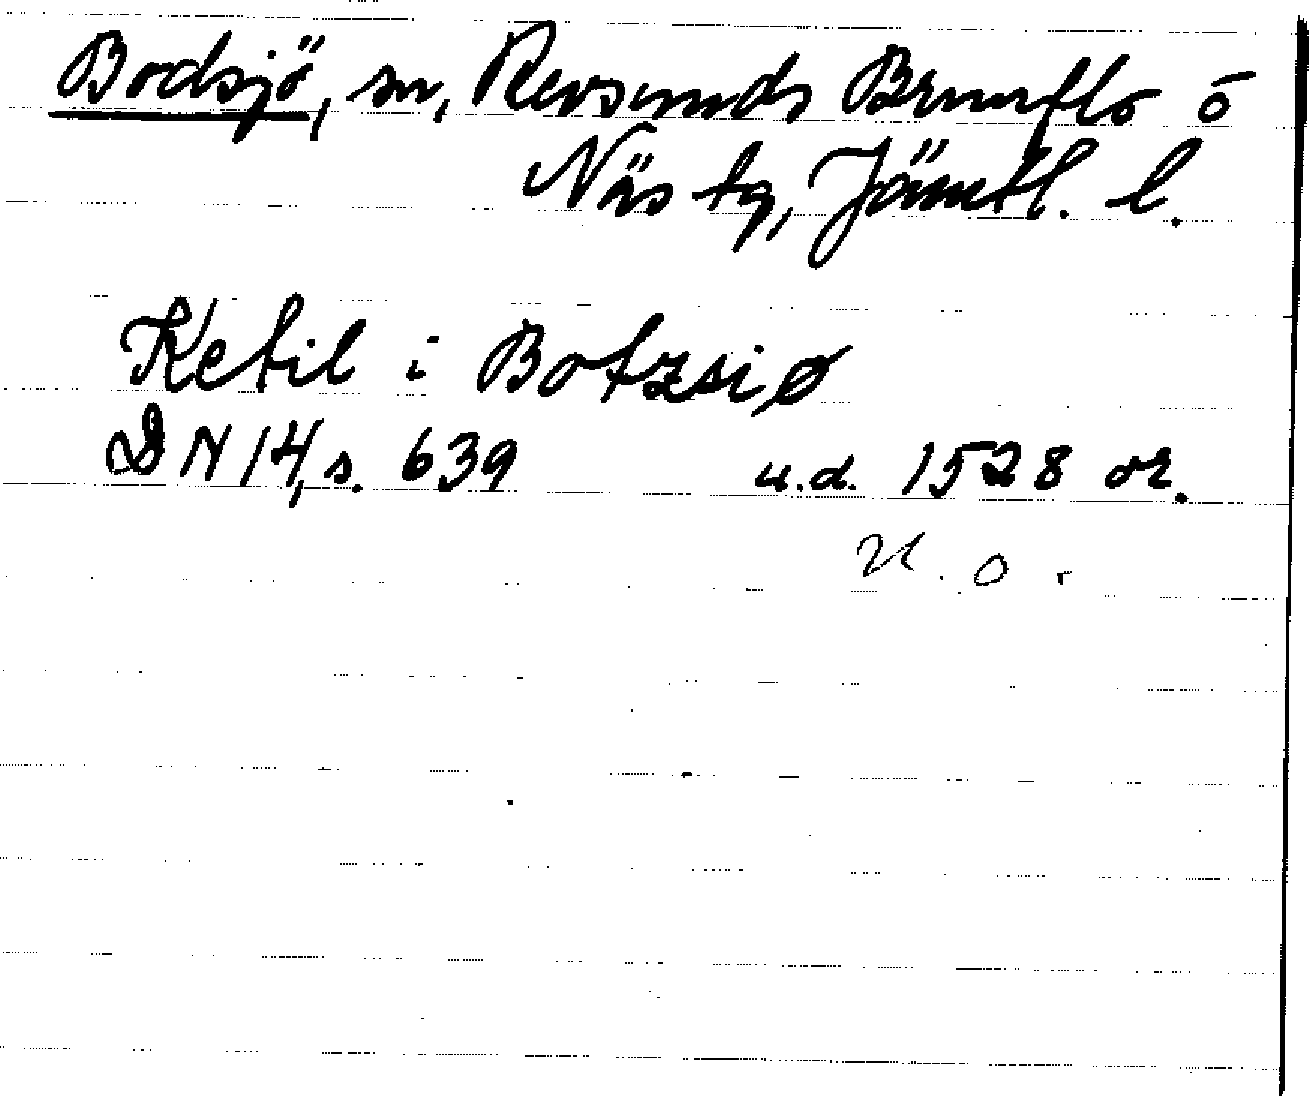 Bodsjö, sn, Revsunds Brunflo o
Näs tg, Jämtl. l.
Ketil i Botzsiø
DN 14, s. 639 u.d. 1528 or.
N. O.